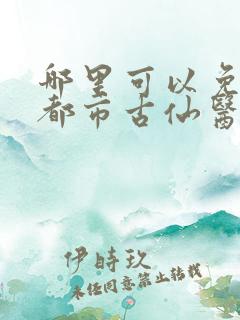 哪里可以免
都市古仙醫
伊時玖
未经同意禁止转载